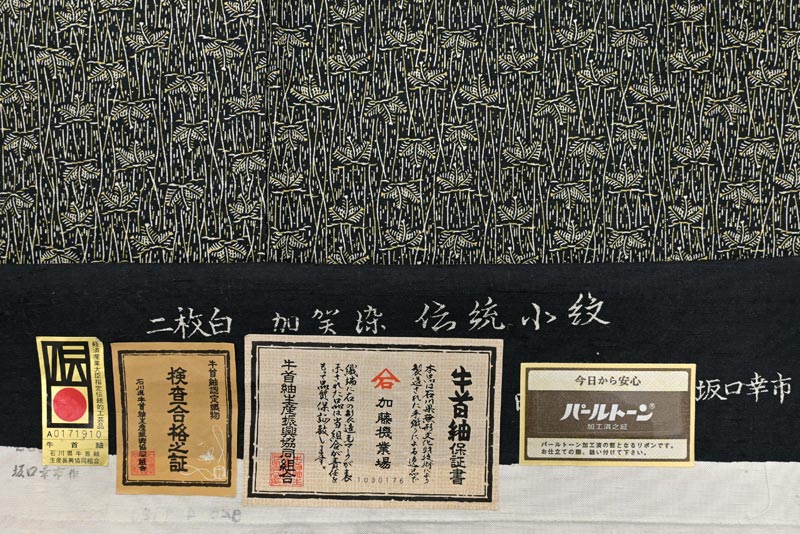 二枚白 加賀染 伝統小紋
坂口幸市
伝
経済産業大臣指定伝統的工芸品
A0171910
牛首紬
石川県牛首紬
生産振興協同組合
坂口幸市作
牛首紬認定織物
検査合格之証
石川県牛首紬生産振興協同組合
牛首紬保証書
本品は石川県無形文化財技術により
製造された手織りによる逸品で
織端に石の彫造玉マークが表
示された石は当組合が責任を
もって品質保証致します。
石
加藤機業場
牛首紬生産振興協同組合
1030176
今日から安心
パールトーン
加工済之証
パールトーン加工済の証となるリボンです。
お仕立ての際、縫い付けて下さい。